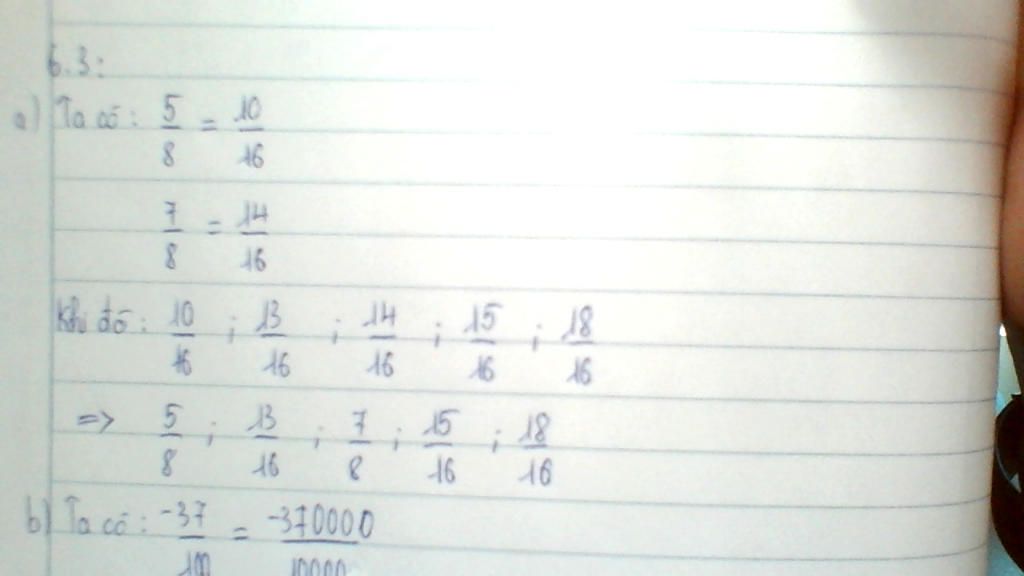 6.3:
a) Ta có: 5/8 = 10/16
7/8 = 14/16
Khi đó: 10/16 ; 13/16 ; 14/16 ; 15/16 ; 18/16
=> 5/8 ; 13/16 ; 7/8 ; 15/16 ; 18/16
b) Ta có: -37/100 = -370000/10000